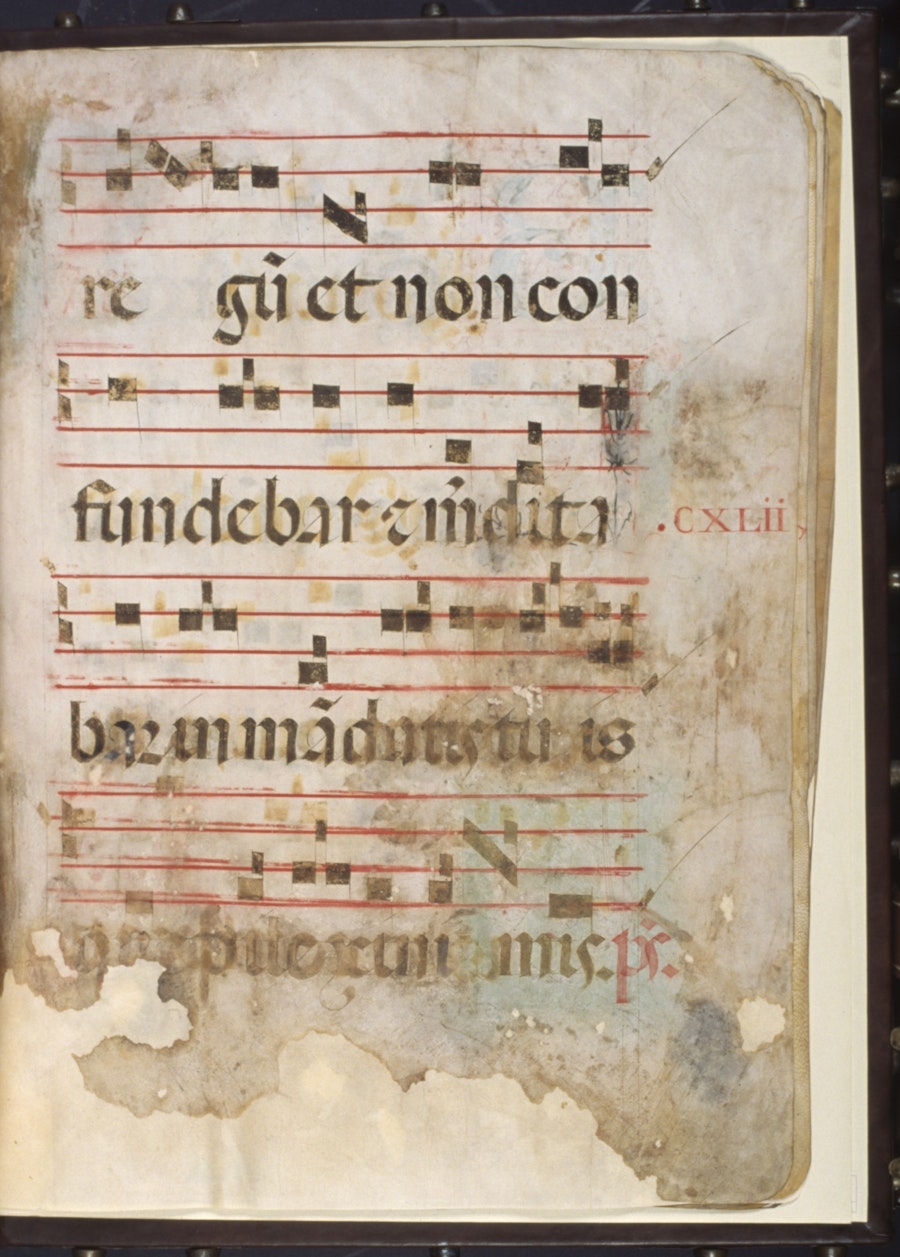 re gũ et non con
fundebar ⁊ m̃edita
bar in mãdatis tu is
nimis. p̃s.
.CXLii,